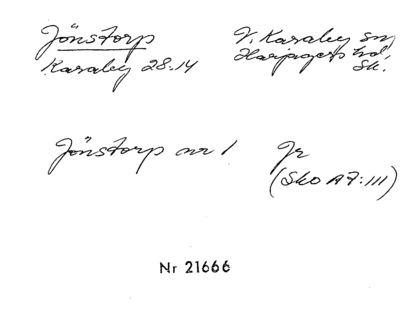 Jönstorp
Karaby 28-14
V. Karaby sn
Harjagers hd
Sk.
Jönstorp nr 1
Jr
(Sko A7:111)
Nr 21666